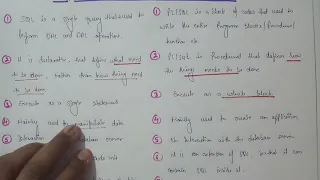 ① SQL is a single query that used to
perform DML and DDL operations.
② It is declarative, that defines what need
to be done, rather than how thing need
to be done
③ Execute as a single statement
④ Mainly used to manipulate data
⑤ Interaction database server
⑥
① PL/SQL is a block of codes that used to
write the entire Program blocks/Procedure/
function etc
② PL/SQL is Procedural that defines how
the things needs to be done
③ Execute as a whole block.
④ Mainly used to create an application
⑤ No interaction with the database server
⑥ It is an extension of SQL, so that it can
contain SQL inside it.